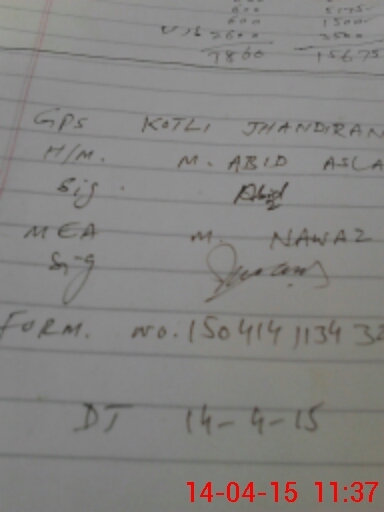 600 1500
2600 3500
7860 15675
GPS KOTLI JHANDIRAN
H/M. M. ABID ASLA
Sig. Abid
MEA M. NAWAZ
Sig
FORM. NO. 150414113432
DT 14-4-15
14-04-15 11:37